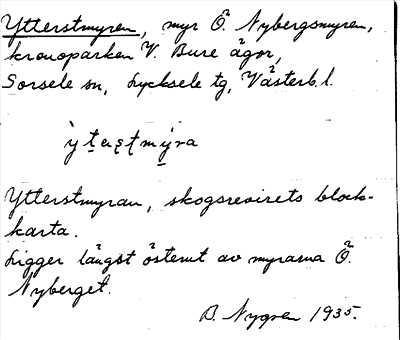 Ytterstmyren, myr Ö. Nybergsmyren,
kronoparken V. Bure ägor,
Sorsele sn, Lycksele tg, Västerb.l.
Ytterstmyran, skogsrevirets block-
karta.
Ligger längst österut av myrarna Ö.
Nyberget.
B. Nygren 1935.